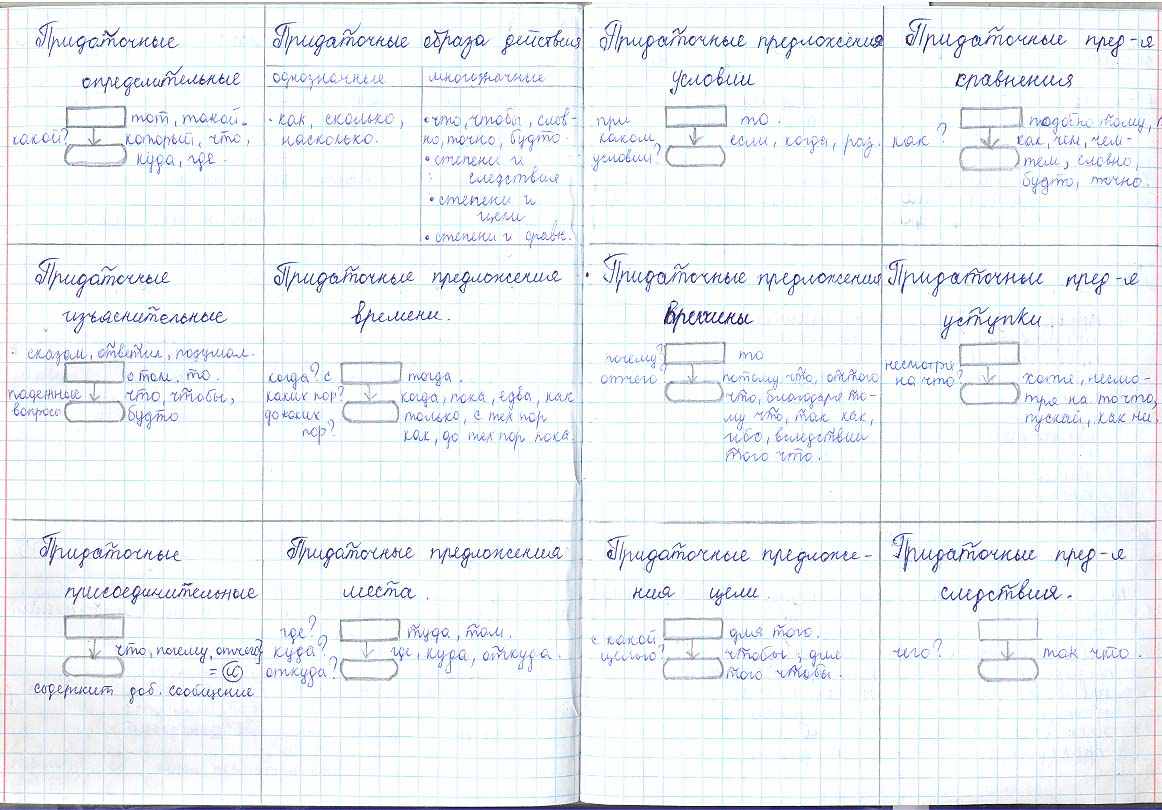 Придаточные
определительные
тот, такой.
какой? который, что,
куда, где.
Придаточные образа действия
однозначные
многозначные
· как, сколько,
насколько.
• что, чтобы, слов-
но, точно, будто.
• степени и
следствия
• степени и
цели
• степени и сравн.
Придаточные предложения
условии
при
каком
условии?
то.
если, когда, раз.
Придаточные пред-я
сравнения
как?
подобно тому,
как, чем, чем-
тем, словно,
будто, точно.
Придаточные
изъяснительные
· сказал, ответил, подумал.
о том, то.
падежные
вопросы
что, чтобы,
будто
Придаточные предложения
времени.
когда? с
каких пор?
до каких
пор?
тогда.
когда, пока, едва, как
только, с тех пор
как, до тех пор пока.
· Придаточные предложения
причины
почему?
отчего
то
потому что, оттого
что, благодаря то-
му что, так как,
ибо, вследствии
того что.
Придаточные пред-я
уступки.
несмотря
на что?
хотя, несмо-
тря на то что,
пускай, как ни.
Придаточные
присоединительные
что, почему, отчего
=
содержит доб. сообщение
Придаточные предложения
места.
где?
куда?
откуда?
туда, там.
где, куда, откуда.
Придаточные предложе-
ния цели.
с какой
целью?
для того.
чтобы, для
того чтобы.
Придаточные пред-я
следствия.
чего?
так что.